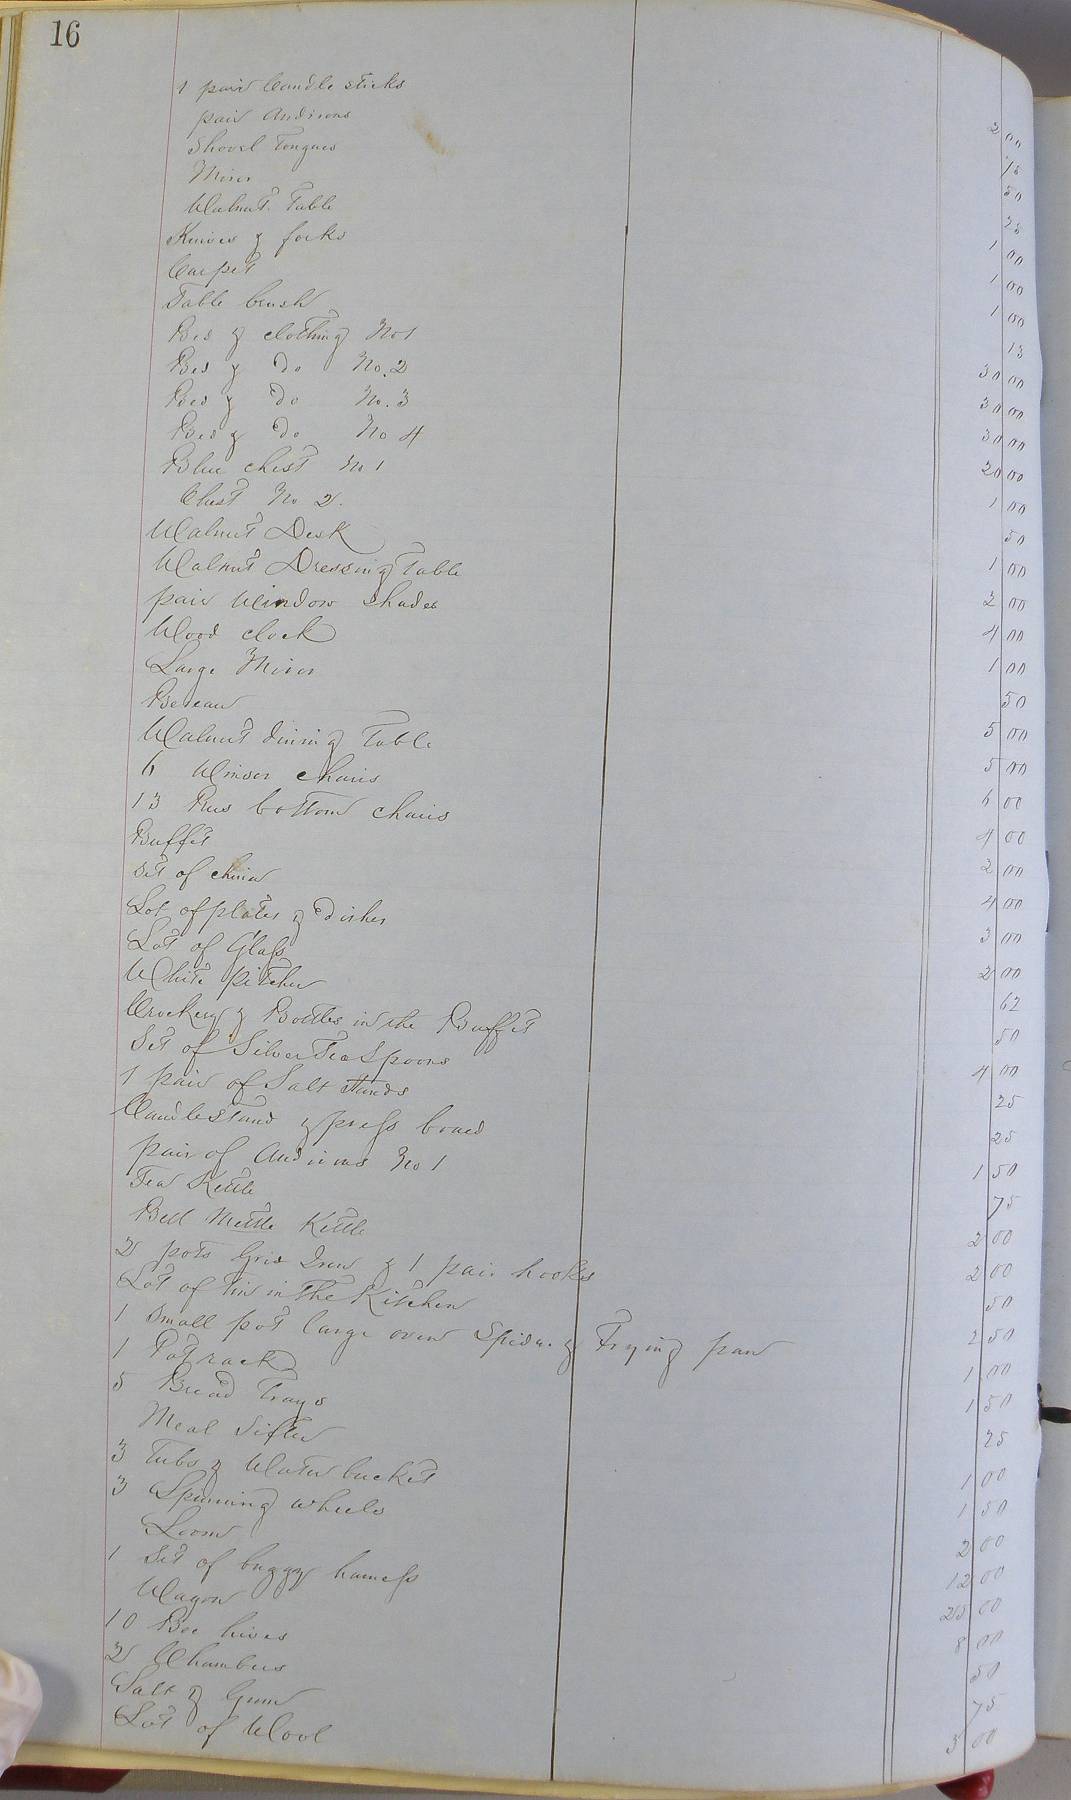 16
1 pair Candle sticks 2 00
pair Andirons 75
Shovel Tongues 50
Miror 25
Walnut Table 1 00
Knives & forks 1 00
Carpet 1 00
Table brush 13
Bed & clothing No 1 30 00
Bed & do No. 2 30 00
Bed & do No. 3 30 00
Bed & do No 4 20 00
Blue chest No 1 1 00
Chest No 2. 50
Walnut Desk 1 00
Walnut Dressing Table 2 00
pair Window Shades 4 00
Wood clock 1 00
Large Miror 50
Bereau 5 00
Walnut dining Table 5 00
6 Winsor chairs 6 00
13 Rus bottom chairs 4 00
Buffet 2 00
Set of china 4 00
Lot of plates & dishes 3 00
Lot of Glass 2 00
White pitcher 62
Crockery & Bottles in the Buffet 50
Set of Silver Tea Spoons 4 00
1 pair of Salt stands 25
Candlestand & press board 25
pair of Andirons No 1 1 50
Tea Kettle 75
Bell Mettle Kettle 2 00
2 pots Grid Iron & 1 pair hooks 2 00
Lot of tin in the Kitchen 50
1 Small pot large oven Spider & Frying pan 2 50
1 Pot rack 1 00
5 Bread Trays 1 50
Meal Sifter 25
3 Tubs & Water bucket 1 00
3 Spinning wheels 1 50
Loom 2 00
1 Set of buggy harness 12 00
Wagon 25 00
10 Bee hives 8 00
2 Chambers 50
Salt & Gum 75
Lot of Wool 3 00